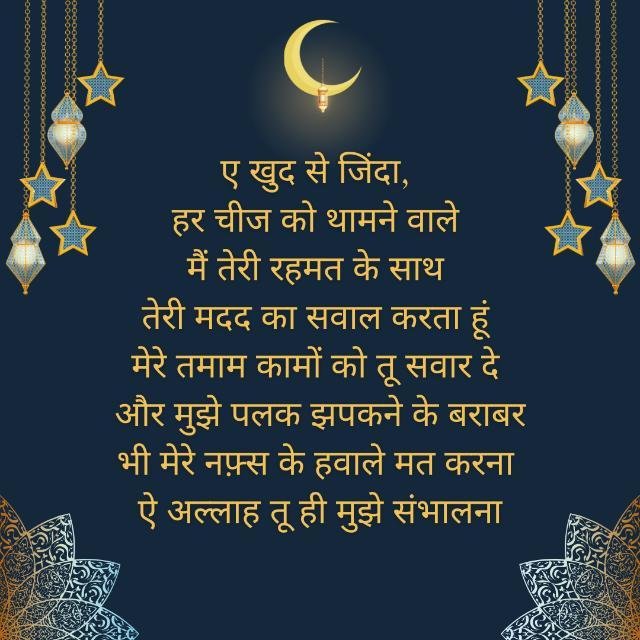 ए खुद से जिंदा,
हर चीज को थामने वाले
मैं तेरी रहमत के साथ
तेरी मदद का सवाल करता हूं
मेरे तमाम कामों को तू सवार दे
और मुझे पलक झपकने के बराबर
भी मेरे नफ़्स के हवाले मत करना
ऐ अल्लाह तू ही मुझे संभालना